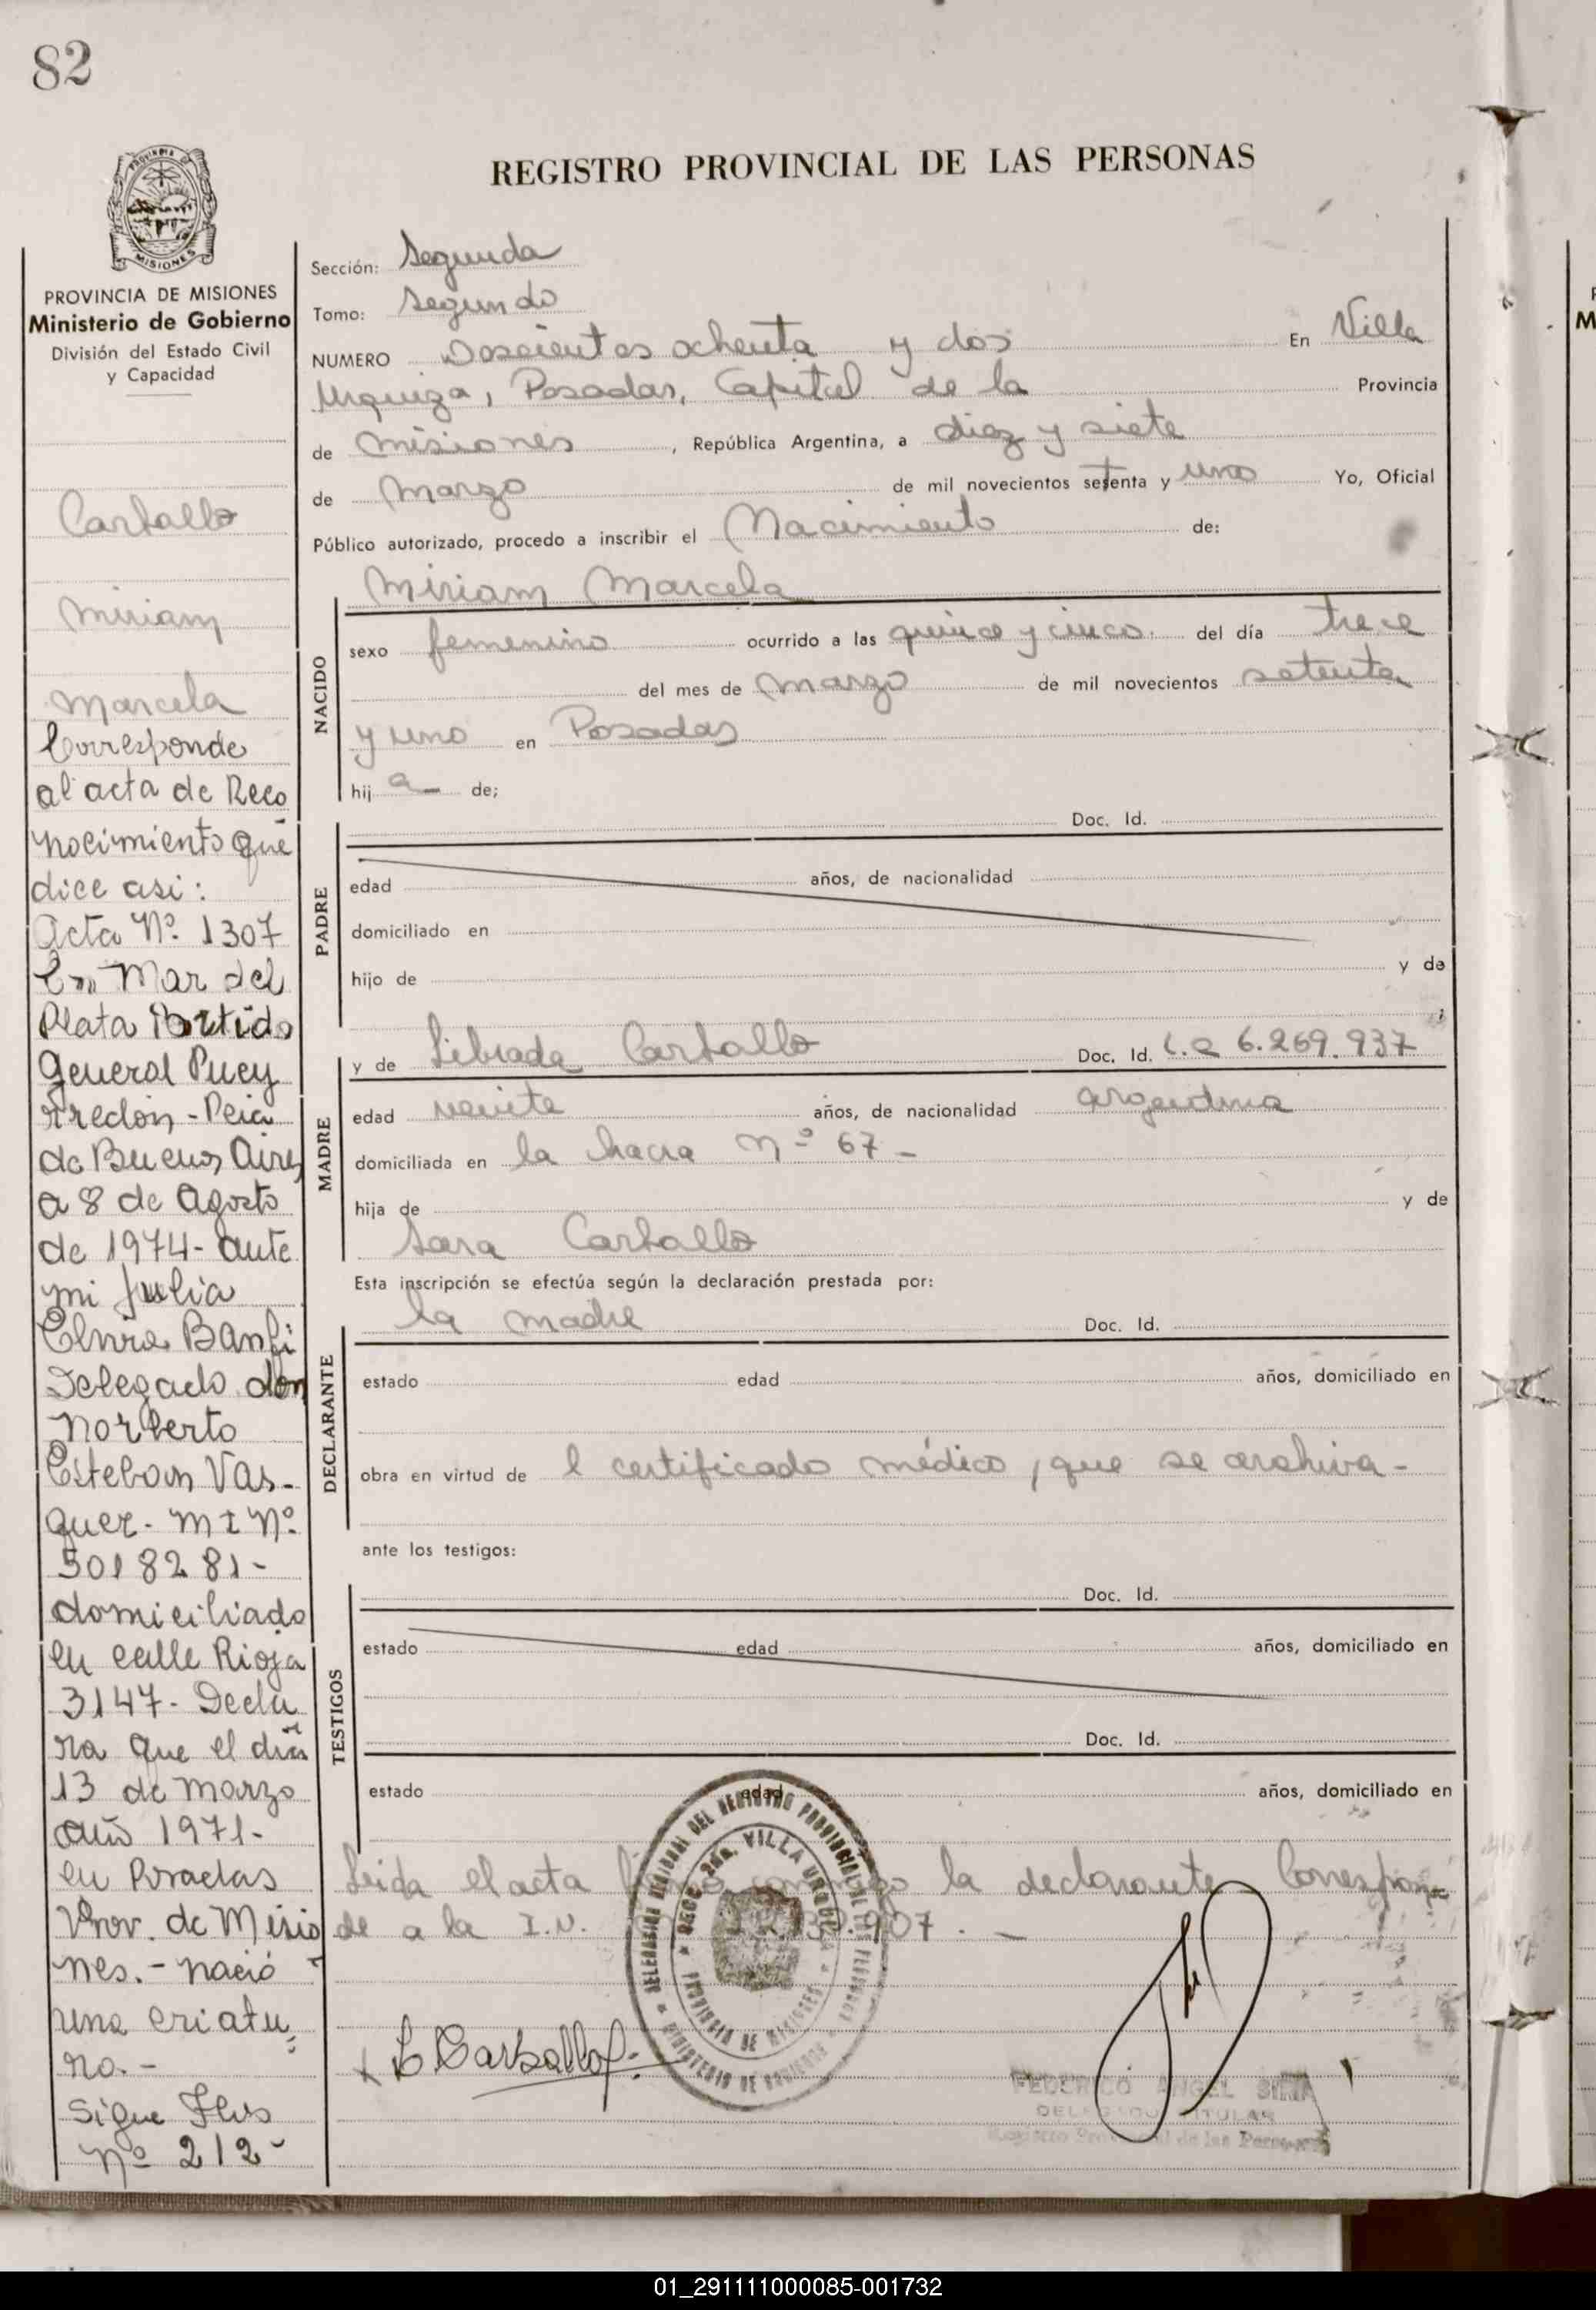 82
REGISTRO PROVINCIAL DE LAS PERSONAS
PROVINCIA
MISIONES
PROVINCIA DE MISIONES
Ministerio de Gobierno
División del Estado Civil
y Capacidad
Carballo
Miriam
Marcela
Corresponde
al acta de Reco
nocimiento que
dice asi:
Acta Nº 1307
En Mar del
Plata Partido
General Puey
rredón - Pcia
de Buenos Aires
a 8 de Agosto
de 1974 - ante
mi Julia
Elvira Banfi
Delegado don
Norberto
Esteban Vas-
quez - M I Nº
5018281-
domiciliado
en calle Rioja
3147 - Decla
ra que el día
13 de Marzo
año 1971-
en Posadas
Prov. de Misio
nes. - nació
una criatu
ra. -
Sigue
Nº 212-
Sección: Segunda
Tomo: Segundo
NUMERO Doscientos ochenta y dos En Villa
Urquiza, Posadas, Capital de la Provincia
de Misiones, República Argentina, a diez y siete
de Marzo de mil novecientos setenta y uno Yo, Oficial
Público autorizado, procedo a inscribir el Nacimiento de:
Miriam Marcela
NACIDO
sexo femenino ocurrido a las quince y cinco. del día trece
del mes de Marzo de mil novecientos setenta
y uno en Posadas
hij a de;
Doc. Id.
PADRE
edad años, de nacionalidad
domiciliado en
hijo de y de
;
y de Librada Carballo Doc. Id. L.C 6.269.937
MADRE
edad veinte años, de nacionalidad argentina
domiciliada en la chacra Nº 67 -
hija de y de
Sara Carballo
Esta inscripción se efectúa según la declaración prestada por:
la madre Doc. Id.
DECLARANTE
estado edad años, domiciliado en
obra en virtud de l certificado médico, que se archiva -
ante los testigos:
Doc. Id.
TESTIGOS
estado edad años, domiciliado en
Doc. Id.
estado edad años, domiciliado en
Leida el acta firma conmigo la declarante. Correspon
de a la I.N. 907. -
DELEGACION REGIONAL DEL REGISTRO PROVINCIAL DE LAS PERSONAS
SECC. 2da. VILLA URQUIZA
PROVINCIA DE MISIONES
MINISTERIO DE GOBIERNO
L. Carballo
FEDERICO ANGEL
DELEGADO TITULAR
Registro Provincial de las Personas
01_291111000085-001732